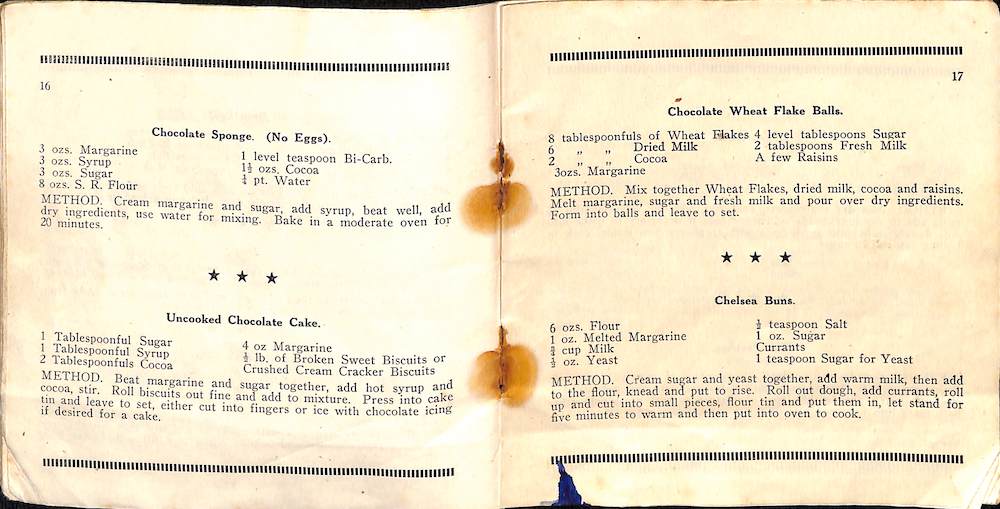 16
Chocolate Sponge. (No Eggs).
3 ozs. Margarine
3 ozs. Syrup
3 ozs. Sugar
8 ozs. S. R. Flour
1 level teaspoon Bi-Carb.
1½ ozs. Cocoa
¼ pt. Water
METHOD. Cream margarine and sugar, add syrup, beat well, add
dry ingredients, use water for mixing. Bake in a moderate oven for
20 minutes.
★ ★ ★
Uncooked Chocolate Cake.
1 Tablespoonful Sugar
1 Tablespoonful Syrup
2 Tablespoonfuls Cocoa
4 oz Margarine
½ lb. of Broken Sweet Biscuits or
Crushed Cream Cracker Biscuits
METHOD. Beat margarine and sugar together, add hot syrup and
cocoa, stir. Roll biscuits out fine and add to mixture. Press into cake
tin and leave to set, either cut into fingers or ice with chocolate icing
if desired for a cake.
17
Chocolate Wheat Flake Balls.
8 tablespoonfuls of Wheat Flakes
6 „ „ Dried Milk
2 „ „ Cocoa
3ozs. Margarine
4 level tablespoons Sugar
2 tablespoons Fresh Milk
A few Raisins
METHOD. Mix together Wheat Flakes, dried milk, cocoa and raisins.
Melt margarine, sugar and fresh milk and pour over dry ingredients.
Form into balls and leave to set.
★ ★ ★
Chelsea Buns.
6 ozs. Flour
1 oz. Melted Margarine
¾ cup Milk
½ oz. Yeast
½ teaspoon Salt
1 oz. Sugar
Currants
1 teaspoon Sugar for Yeast
METHOD. Cream sugar and yeast together, add warm milk, then add
to the flour, knead and put to rise. Roll out dough, add currants, roll
up and cut into small pieces, flour tin and put them in, let stand for
five minutes to warm and then put into oven to cook.